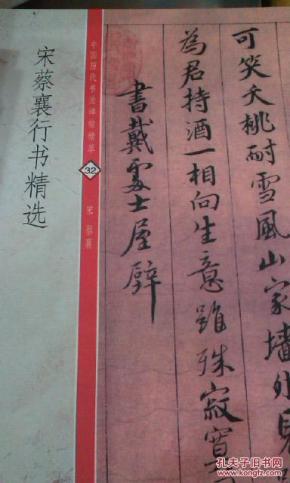 宋蔡襄行书精选
中国历代书法碑帖精萃
32
宋 蔡襄
可笑夭桃耐雪風山家墻外見
為君持酒一相向生意雖殊寂寞
書戴處士屋壁
孔夫子旧书网